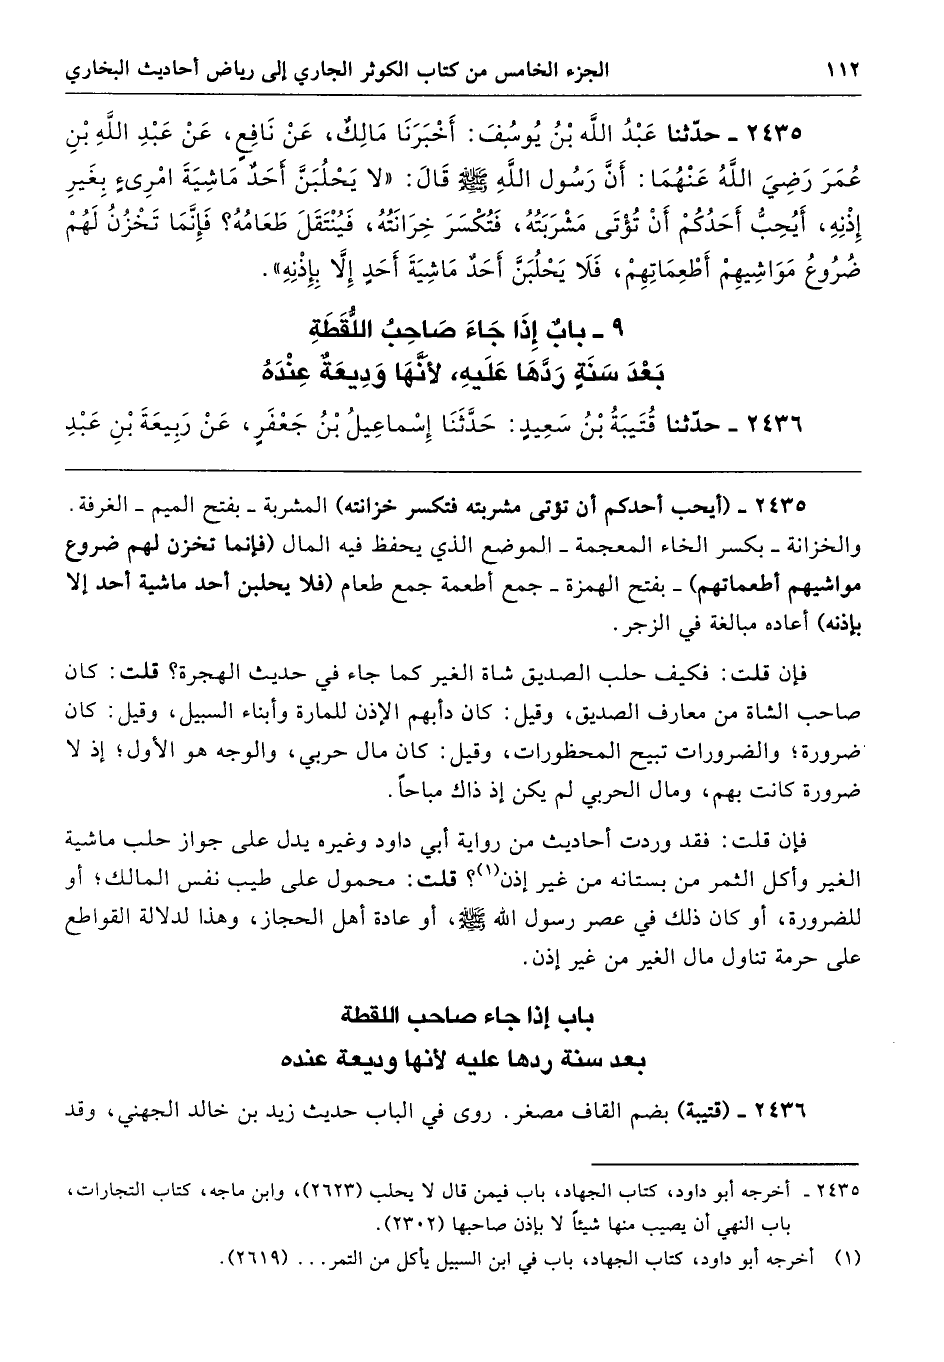 ١١٢ الجزء الخامس من كتاب الكوثر الجاري إلى رياض أحاديث البخاري
٢٤٣٥ ـ حدّثنا عَبْدُ اللَّه بْنُ يُوسُفَ: أَخْبَرَنَا مَالِكٌ، عَنْ نَافِعٍ، عَنْ عَبْدِ اللَّهِ بْنِ
عُمَرَ رَضِيَ اللَّهُ عَنْهُمَا: أَنَّ رَسُول اللَّهِ ﷺ قَالَ: «لا يَحْلُبَنَّ أَحَدٌ مَاشِيَةَ امْرِىءٍ بِغَيرِ
إِذْنِهِ، أَيُحِبُّ أَحَدُكُمْ أَنْ تُؤْتَى مَشْرَبَتُهُ، فَتُكْسَرَ خِزَانَتُهُ، فَيُنْتَقَلَ طَعَامُهُ؟ فَإِنَّمَا تَخْزُنُ لَهُمْ
ضُرُوعُ مَوَاشِيهِمْ أَطْعِمَاتِهِمْ، فَلَا يَحْلُبَنَّ أَحَدٌ مَاشِيَةَ أَحَدٍ إِلَّا بِإِذْنِهِ».
٩ ـ بابٌ إِذَا جَاءَ صَاحِبُ اللُّقَطَةِ
بَعْدَ سَنَةٍ رَدَّهَا عَلَيهِ، لأَنَّهَا وَدِيعَةٌ عِنْدَهُ
٢٤٣٦ ـ حدّثنا قُتَيبَةُ بْنُ سَعِيدٍ: حَدَّثَنَا إِسْماعِيلُ بْنُ جَعْفَرٍ، عَنْ رَبِيعَةَ بْنِ عَبْدِ
٢٤٣٥ ـ (أيحب أحدكم أن تؤتى مشربته فتكسر خزانته) المشربة ـ بفتح الميم ـ الغرفة.
والخزانة ـ بكسر الخاء المعجمة ـ الموضع الذي يحفظ فيه المال (فإنما تخزن لهم ضروع
مواشيهم أطعماتهم) ـ بفتح الهمزة ـ جمع أطعمة جمع طعام (فلا يحلبن أحد ماشية أحد إلا
بإذنه) أعاده مبالغة في الزجر.
فإن قلت: فكيف حلب الصديق شاة الغير كما جاء في حديث الهجرة؟ قلت: كان
صاحب الشاة من معارف الصديق، وقيل: كان دأبهم الإذن للمارة وأبناء السبيل، وقيل: كان
ضرورة؛ والضرورات تبيح المحظورات، وقيل: كان مال حربي، والوجه هو الأول؛ إذ لا
ضرورة كانت بهم، ومال الحربي لم يكن إذ ذاك مباحاً.
فإن قلت: فقد وردت أحاديث من رواية أبي داود وغيره يدل على جواز حلب ماشية
الغير وأكل الثمر من بستانه من غير إذن(١)؟ قلت: محمول على طيب نفس المالك؛ أو
للضرورة، أو كان ذلك في عصر رسول الله ﷺ، أو عادة أهل الحجاز، وهذا لدلالة القواطع
على حرمة تناول مال الغير من غير إذن.
باب إذا جاء صاحب اللقطة
بعد سنة ردها عليه لأنها وديعة عنده
٢٤٣٦ ـ (قتيبة) بضم القاف مصغر. روى في الباب حديث زيد بن خالد الجهني، وقد
٢٤٣٥ ـ أخرجه أبو داود، كتاب الجهاد، باب فيمن قال لا يحلب (٢٦٢٣)، وابن ماجه، كتاب التجارات،
باب النهي أن يصيب منها شيئاً لا بإذن صاحبها (٢٣٠٢).
(١) أخرجه أبو داود، كتاب الجهاد، باب في ابن السبيل يأكل من التمر... (٢٦١٩).